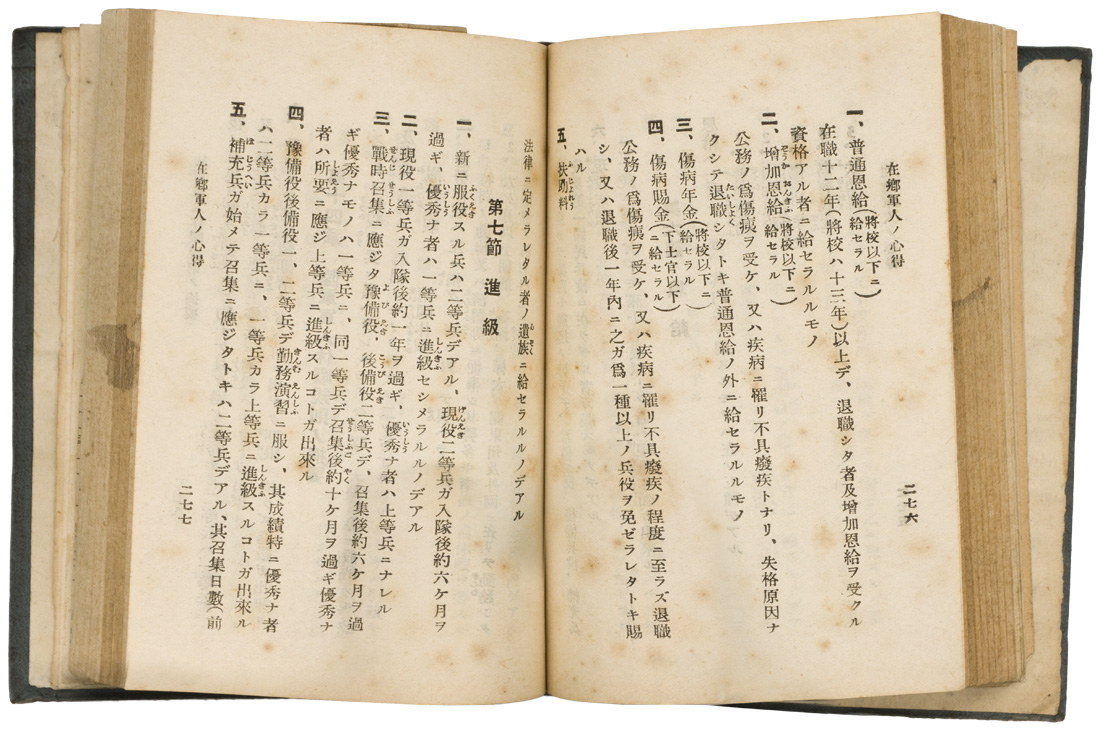 在郷軍人ノ心得
二七六
一、普通恩給(將校以下ニ給セラル)
在職十二年(將校ハ十三年)以上デ、退職シタ者及增加恩給ヲ受クル
資格アル者ニ給セラルルモノ
二、增加恩給(將校以下ニ給セラル)
公務ノ爲傷痍ヲ受ケ、又ハ疾病ニ罹リ不具癈疾トナリ、失格原因ナ
クシテ退職シタトキ普通恩給ノ外ニ給セラルルモノ
三、傷病年金(將校以下ニ給セラル)
四、傷病賜金(下士官以下ニ給セラル)
公務ノ爲傷痍ヲ受ケ、又ハ疾病ニ罹リ不具癈疾ノ程度ニ至ラズ退職
シ、又ハ退職後一年內ニ之ガ爲一種以上ノ兵役ヲ免ゼラレタトキ賜
ハル
五、扶助料
法律ニ定メラレタル者ノ遺族ニ給セラルルノデアル
第七節 進級
一、新ニ服役スル兵ハ二等兵デアル、現役二等兵ガ入隊後約六ケ月ヲ
過ギ、優秀ナ者ハ一等兵ニ進級セシメラルルノデアル
二、現役一等兵ガ入隊後約一年ヲ過ギ、優秀ナ者ハ上等兵ニナレル
三、戰時召集ニ應ジタ豫備役、後備役二等兵デ、召集後約六ケ月ヲ過
ギ優秀ナモノハ一等兵ニ、同一等兵デ召集後約十ケ月ヲ過ギ優秀ナ
者ハ所要ニ應ジ上等兵ニ進級スルコトガ出來ル
四、豫備役後備役一、二等兵デ勤務演習ニ服シ、其成績特ニ優秀ナ者
ハ二等兵カラ一等兵ニ、一等兵カラ上等兵ニ進級スルコトガ出來ル
五、補充兵ガ始メテ召集ニ應ジタトキハ二等兵デアル、其召集日數(前
在郷軍人ノ心得
二七七